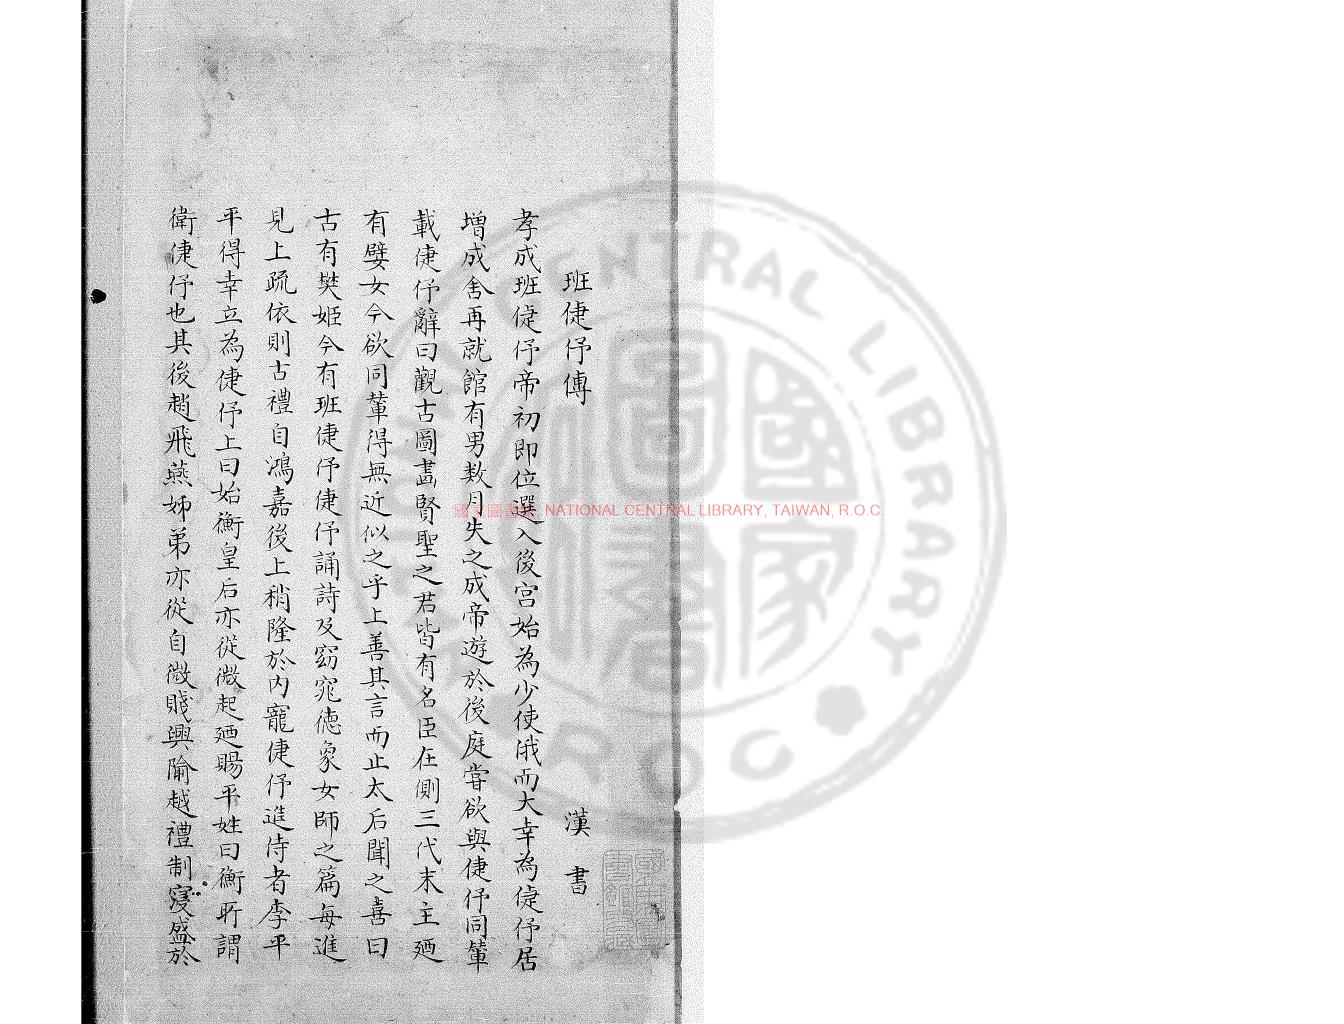 班倢伃傳 漢書
孝成班倢伃帝初即位選入後宮始為少使俄而大幸為倢伃居
增成舍再就館有男數月失之成帝遊於後庭嘗欲與倢伃同輦
載倢伃辭曰觀古圖畫賢聖之君皆有名臣在側三代末主廼
有嬖女今欲同輦得無近似之乎上善其言而止太后聞之喜曰
古有樊姬今有班倢伃倢伃誦詩及窈窕德象女師之篇每進
見上疏依則古禮自鴻嘉後上稍隆於內寵倢伃進侍者李平
平得幸立為倢伃上曰始衛皇后亦從微起廼賜平姓曰衛所謂
衛倢伃也其後趙飛燕姊弟亦從自微賤興隃越禮制寖盛於
NATIONAL CENTRAL LIBRARY, TAIWAN, R.O.C.
CENTRAL LIBRARY
R O C
國家圖書